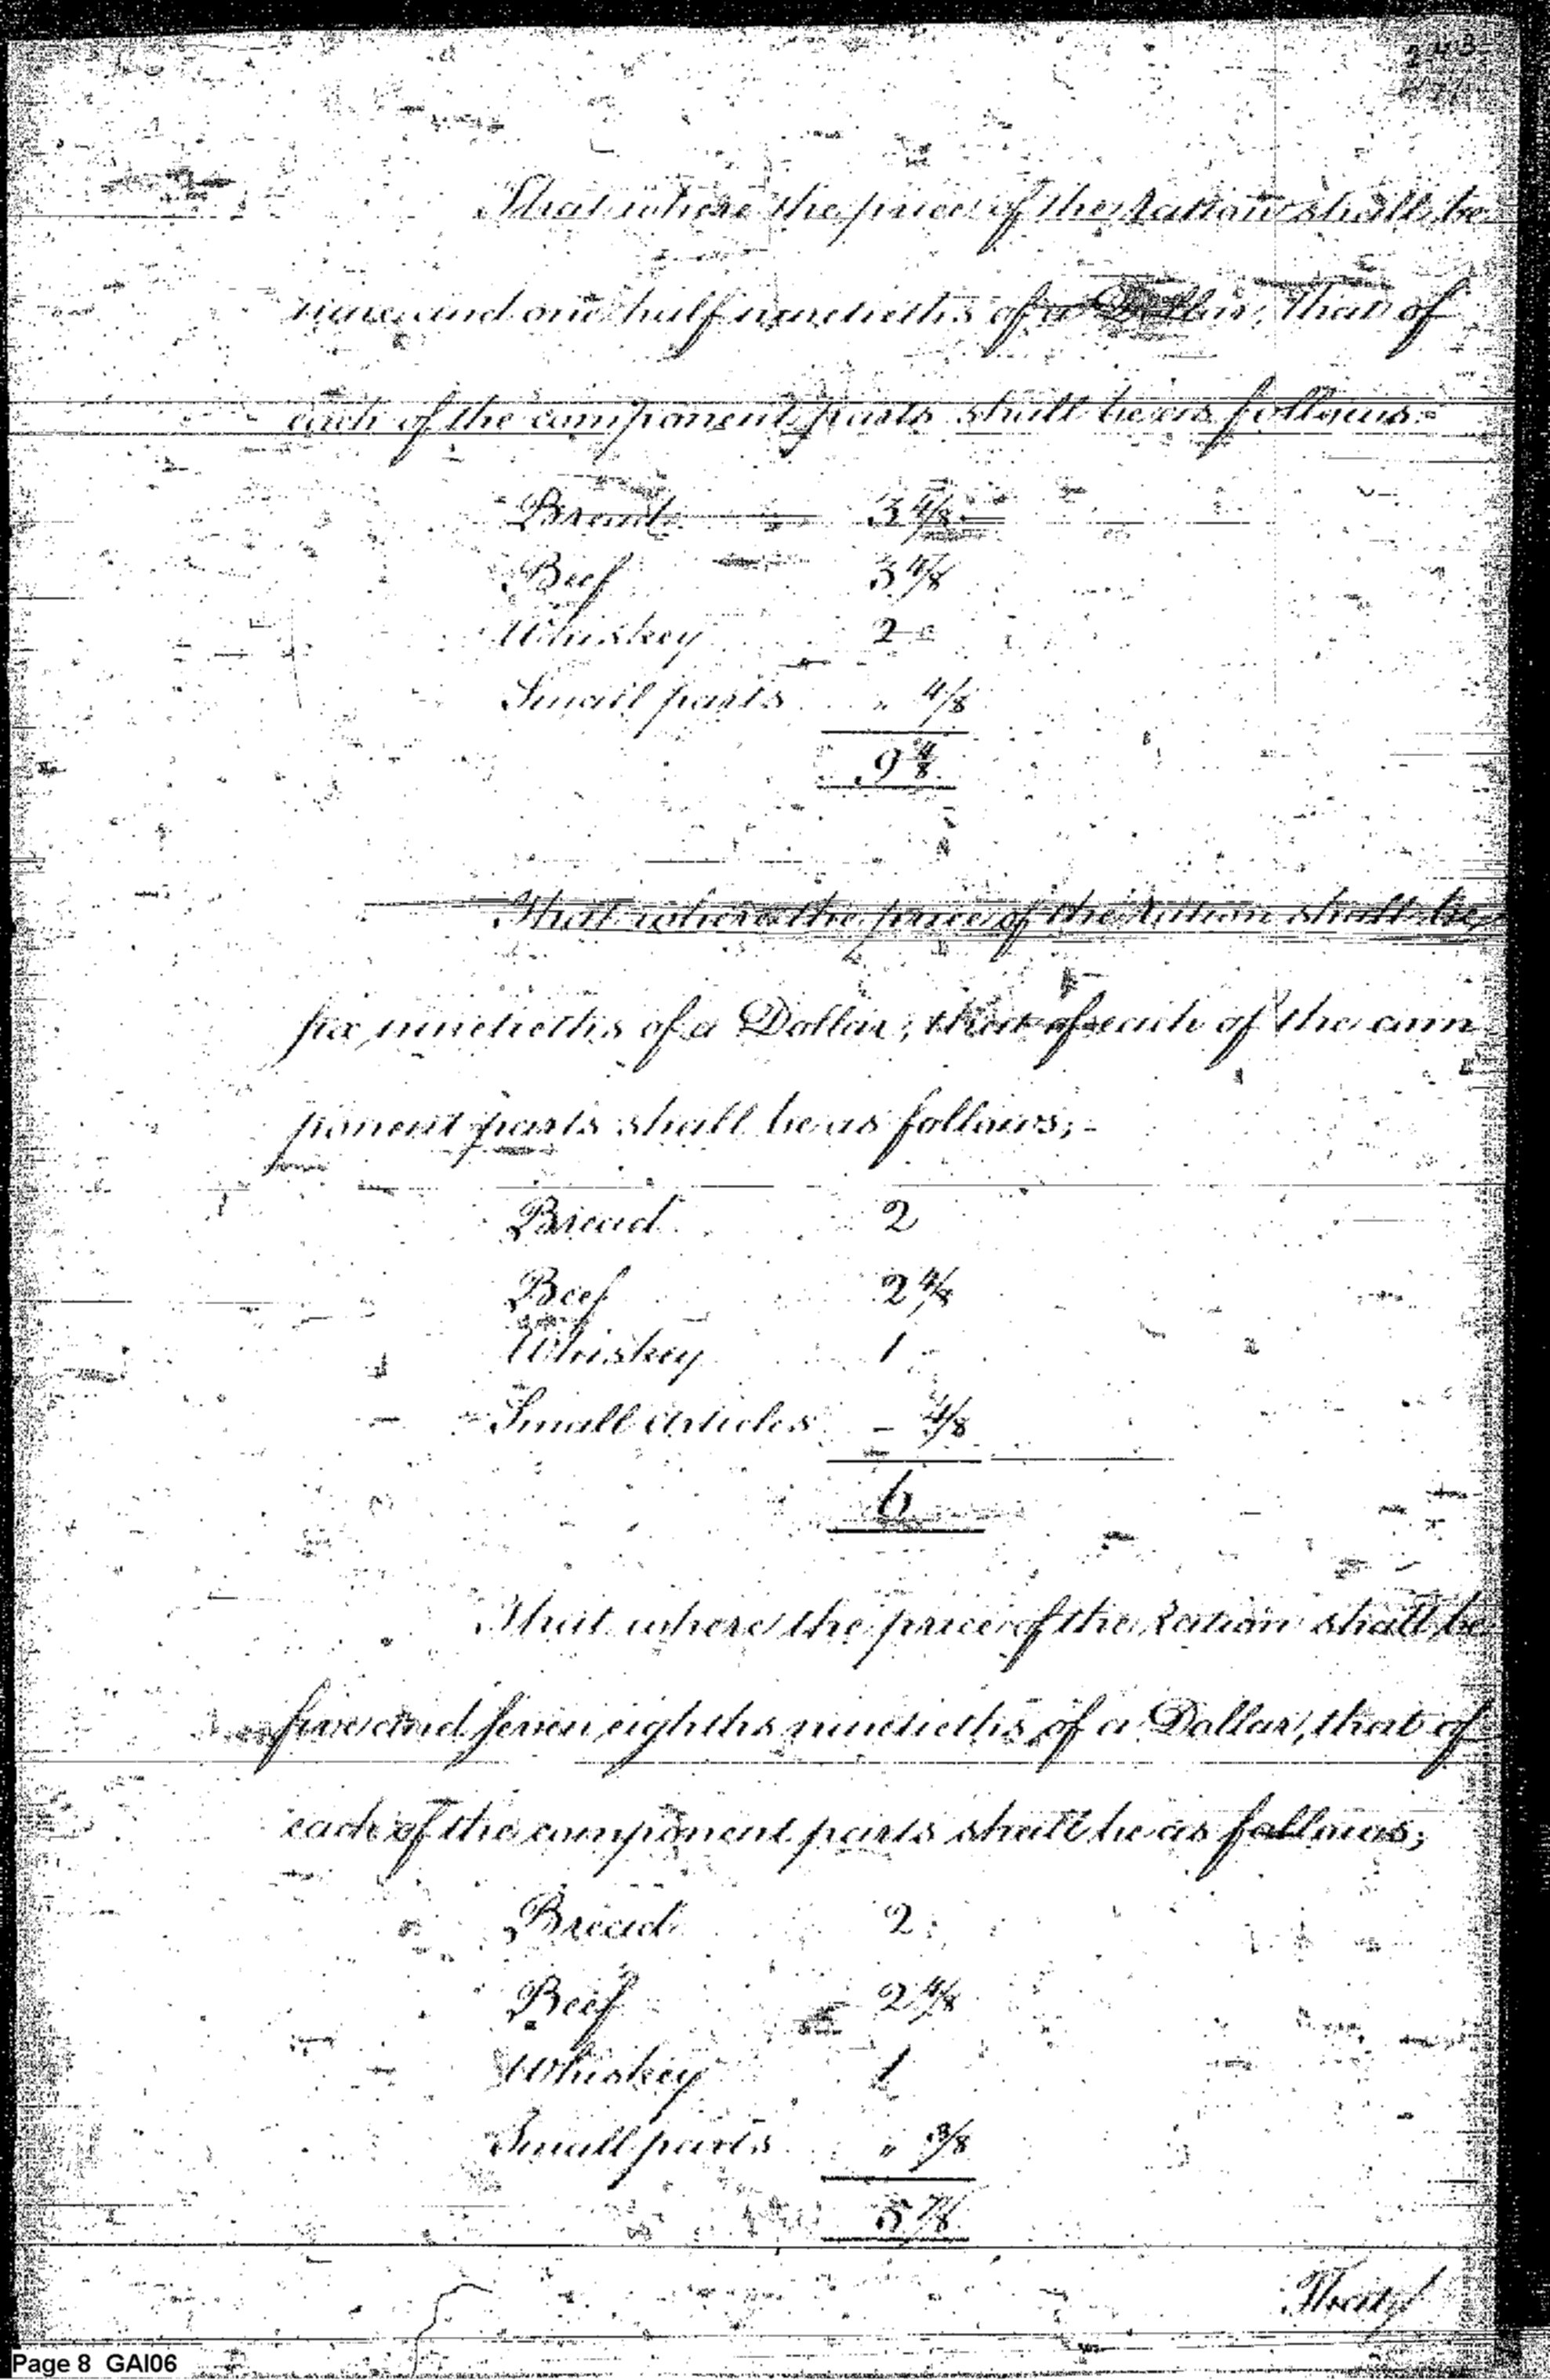 243
That where the price of the Ration shall be
nine and one half ninetieths of a Dollar, that of
each of the component parts shall be as follows:-
Bread 3 4/8
Beef 3 4/8
Whiskey 2 "
Small parts " 4/8
9 4/8
That where the price of the Ration shall be
six ninetieths of a Dollar; that of each of the com
ponent parts shall be as follows;-
Bread 2
Beef 2 4/8
Whiskey 1 -
Small Articles - 4/8
6
That where the price of the Ration shall be
five and seven eighths ninetieths of a Dollar, that of
each of the component parts shall be as follows;
Bread 2
Beef 2 4/8
Whiskey 1
Small parts " 3/8
5 7/8
That
Page 8 GAI06